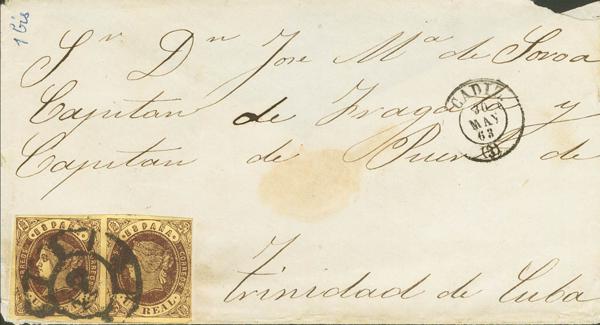 1 Bis
Sr Dn Jose Ma de Soroa
Capitan de Fragata y
Capitan de Puerto de
Trinidad de Cuba
CADIZ
30
MAY
63
(3)
ESPAÑA
CORREOS
ESPAÑA
CORREOS
REAL